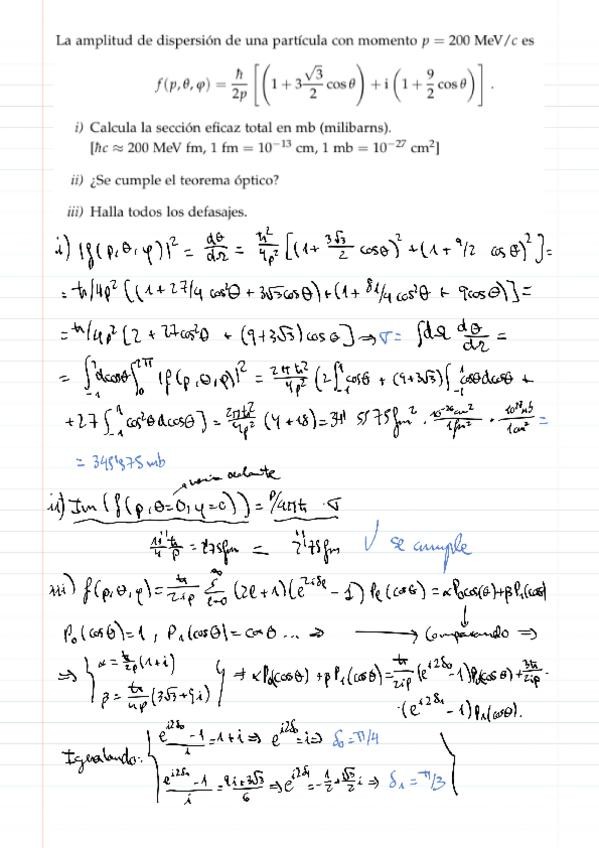 La amplitud de dispersión de una partícula con momento p = 200 MeV/c es
f(p,θ,φ) = ħ/2p [(1 + 3 √3/2 cos θ) + i (1 + 9/2 cos θ)] .
i) Calcula la sección eficaz total en mb (milibarns).
[ħc ≈ 200 MeV fm, 1 fm = 10⁻¹³ cm, 1 mb = 10⁻²⁷ cm²]
ii) ¿Se cumple el teorema óptico?
iii) Halla todos los defasajes.
i) |f(p,θ,φ)|² = dσ/dΩ = ħ²/4p² [(1 + 3√3/2 cosθ)² + (1 + 9/2 cosθ)²] =
= ħ/4p² [(1 + 27/4 cos²θ + 3√3 cosθ) + (1 + 81/4 cos²θ + 9cosθ)] =
= ħ/4p² [2 + 27cos²θ + (9+3√3) cosθ] ⇒ σ = ∫dΩ dσ/dΩ =
= ∫₋₁¹ dcosθ ∫₀²π |f(p,θ,φ)|² = 2πħ²/4p² (2∫₋₁¹ cosθ + (9+3√3) ∫₋₁¹ cosθ dcosθ +
+ 27 ∫₋₁¹ cos²θ dcosθ] = 2πħ²/4p² (4 + 18) = 34'5575 fm² · 10⁻²⁶cm²/1fm² · 10²⁷mb/1cm² =
= 345'575 mb
ii) Im(f(p,θ=0,φ=0)) = p/4πħ · σ
11/4 ħ/p = 2'75fm = 2'75fm √ se cumple
iii) f(p,θ,φ) = ħ/2ip Σ (2l+1)(e^{2iδl} − 1) Pl(cosθ) = αP₀cos(θ) + βP₁(cosθ)
P₀(cosθ) = 1 , P₁(cosθ) = cosθ ... ⇒ → Comparando ⇒
⇒ { α = ħ/2p (1+i)
β = ħ/4p (3√3 + 9i) } → αP₀(cosθ) + βP₁(cosθ) = ħ/2ip (e^{i2δ₀} − 1)P₀(cosθ) + 3ħ/2ip ·
· (e^{i2δ₁} − 1)P₁(cosθ).
Igualando: { e^{i2δ₀} − 1/i = 1+i ⇒ e^{i2δ₀} = i ⇒ δ₀ = π/4
e^{i2δ₁} − 1/i = 9i+3√3/6 ⇒ e^{i2δ₁} = −1/2 + √3/2 i ⇒ δ₁ = π/3 }